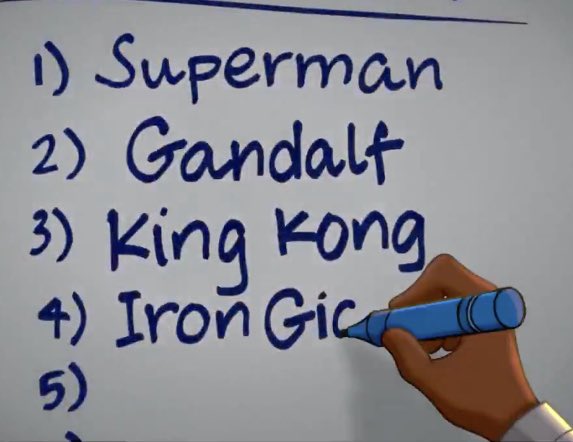 1) Superman
2) Gandalf
3) King Kong
4) Iron Gia
5)